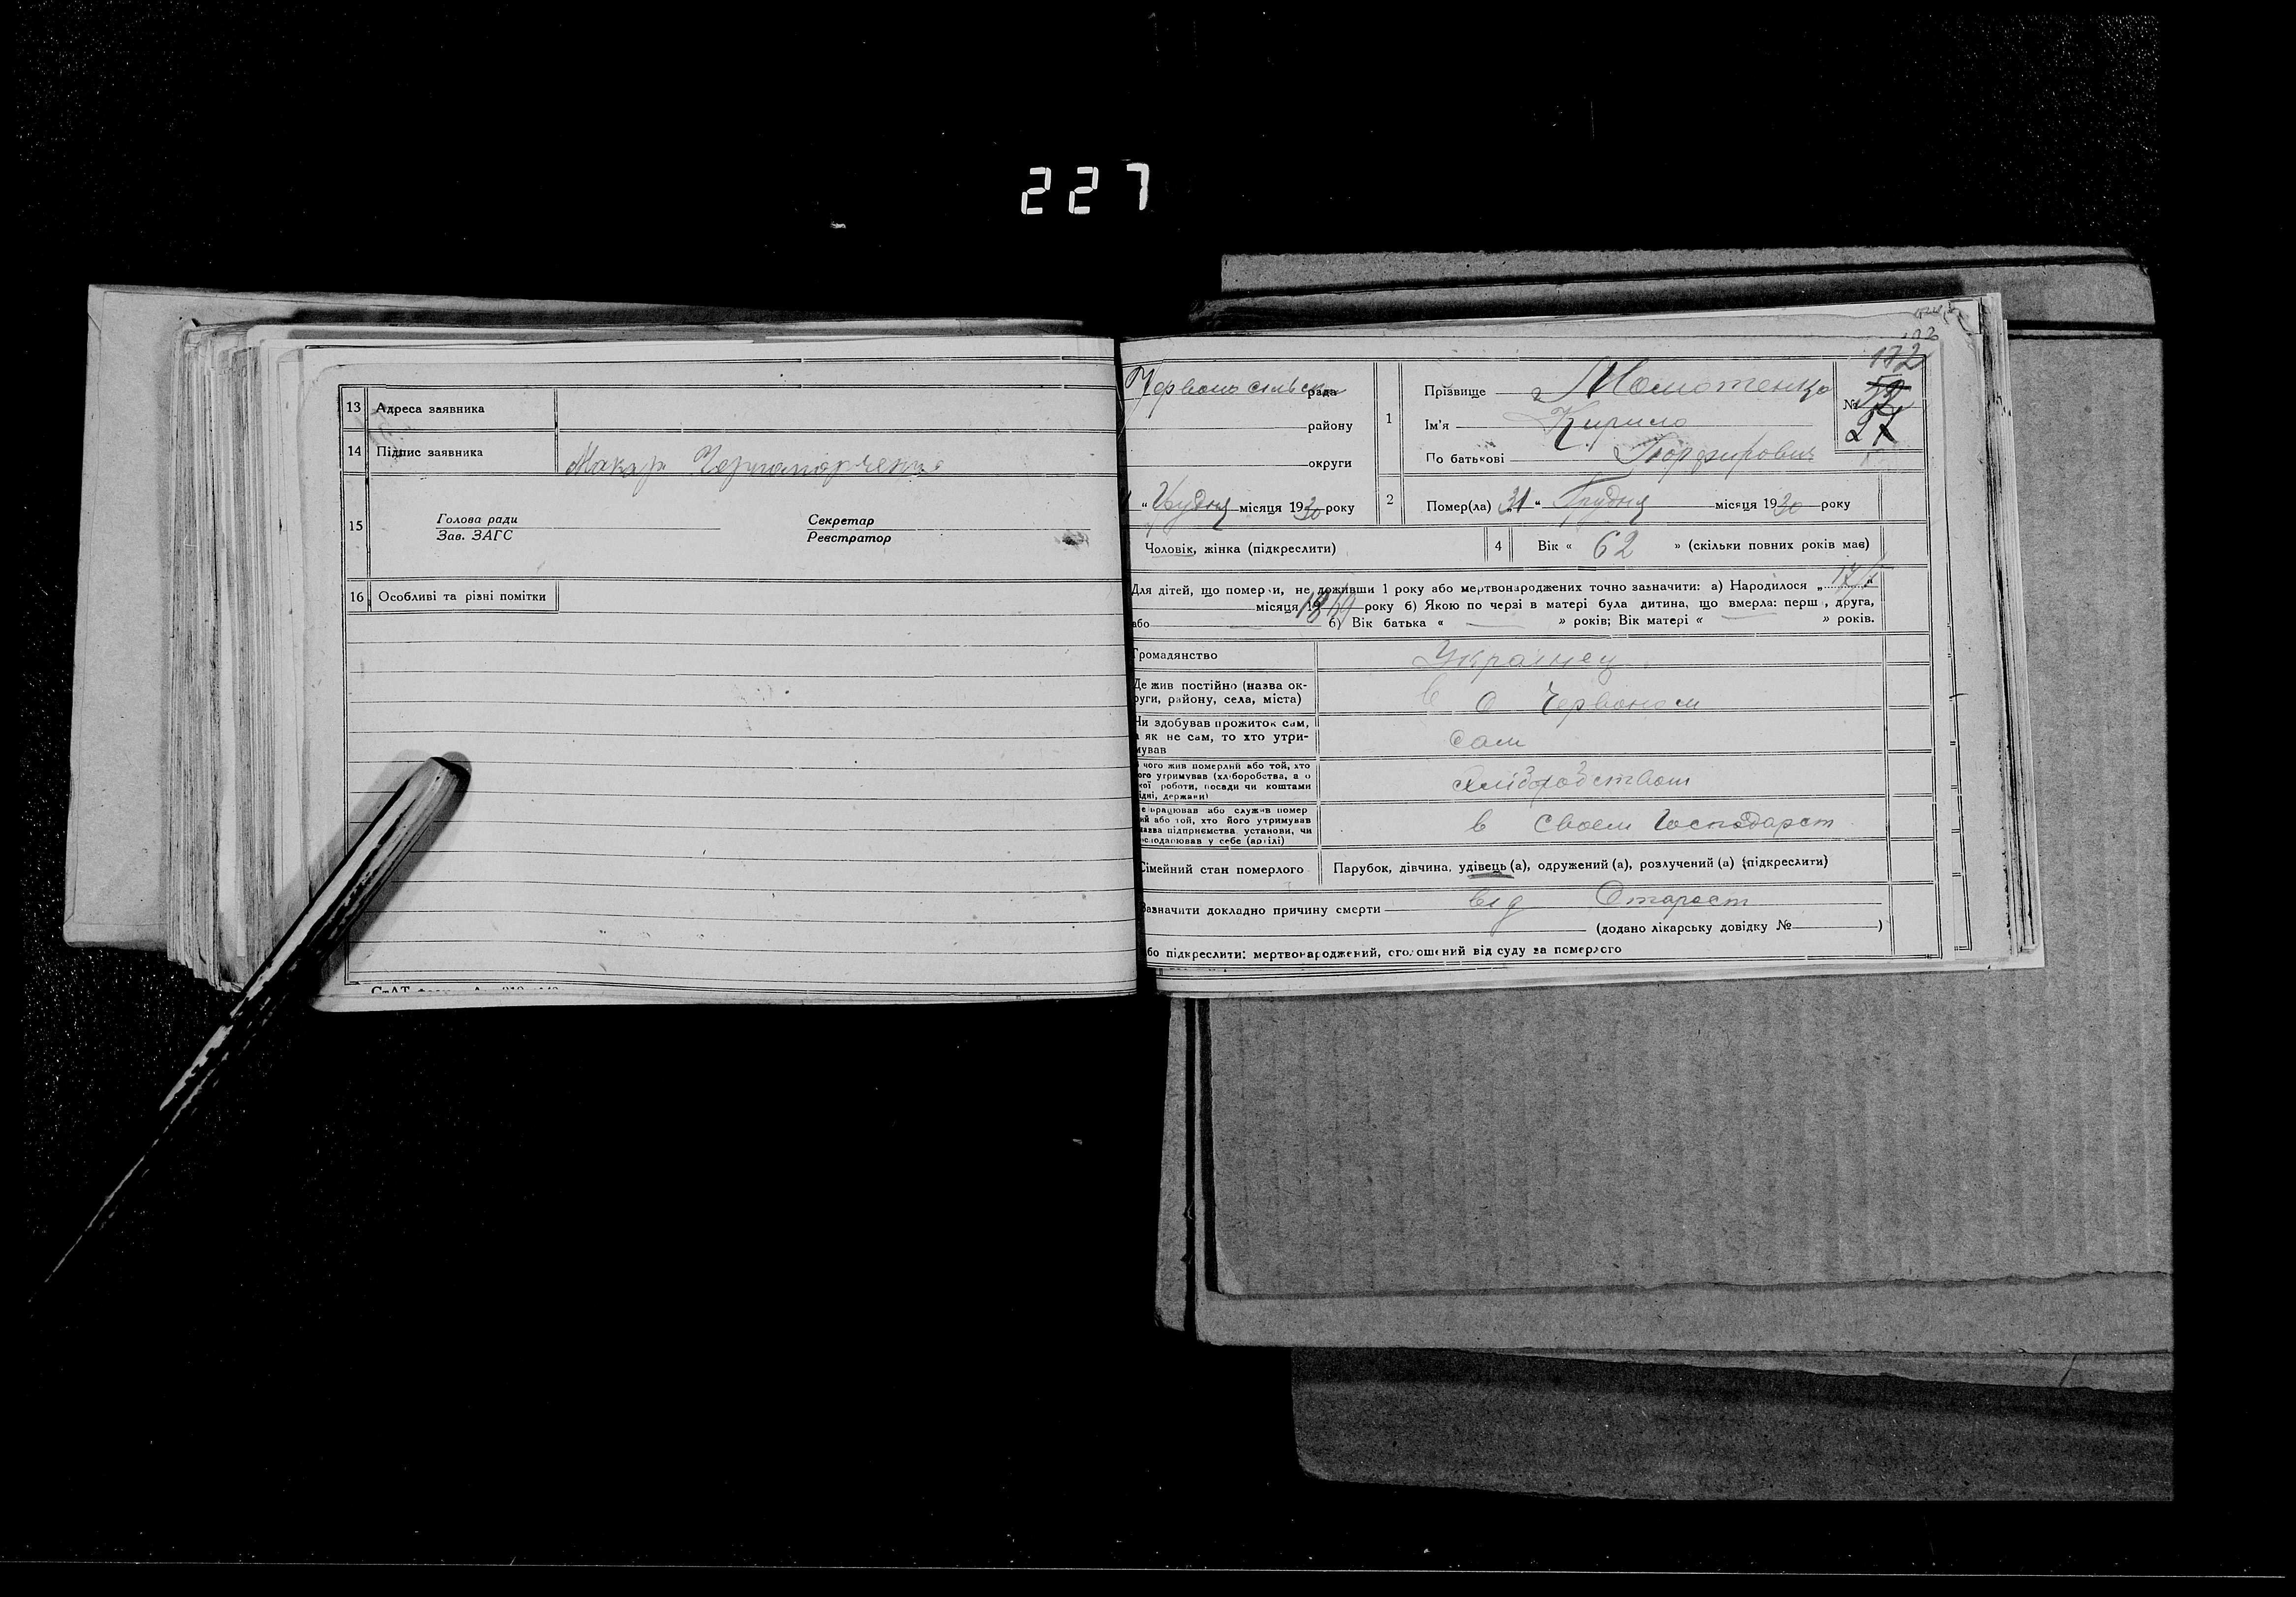 227
13 Адреса заявника
14 Підпис заявника Макар
15 Голова ради Секретар
Зав. ЗАГС Реєстратор
16 Особливі та різні помітки
132
Червоносільськ рада
району
округи
1 Прізвище
Ім'я Кирило
По батькові Порфирович
№ 27
„ Грудня місяця 1930 року
2 Помер(ла) 31 „ Грудня місяця 1930 року
Чоловік, жінка (підкреслити)
4 Вік « 62 » (скільки повних років має)
Для дітей, що померли, не доживши 1 року або мертвонароджених точно зазначити: а) Народилося „
місяця 1869 року б) Якою по черзі в матері була дитина, що вмерла: перш , друга,
або б) Вік батька « » років; Вік матері « » років.
Громадянство Українец
Де жив постійно (назва ок-
руги, району, села, міста) в с Червоном
Чи здобував прожиток сам,
а як не сам, то хто утри-
мував сам
З чого жив померлий або той, хто
його утримував (хліборобства, а о
якої роботи, посади чи коштами
рідні, держави) хліборобством
Де працював або служив помер
лий або той, хто його утримував
назва підприємства, установи, чи
господарював у себе (артілі) в своем Господарст
Сімейний стан померлого Парубок, дівчина, удівець (а), одружений (а), розлучений (а) (підкреслити)
Зазначити докладно причину смерти від Старост
(додано лікарську довідку № )
або підкреслити: мертвонароджений, оголошений від суду за померлого